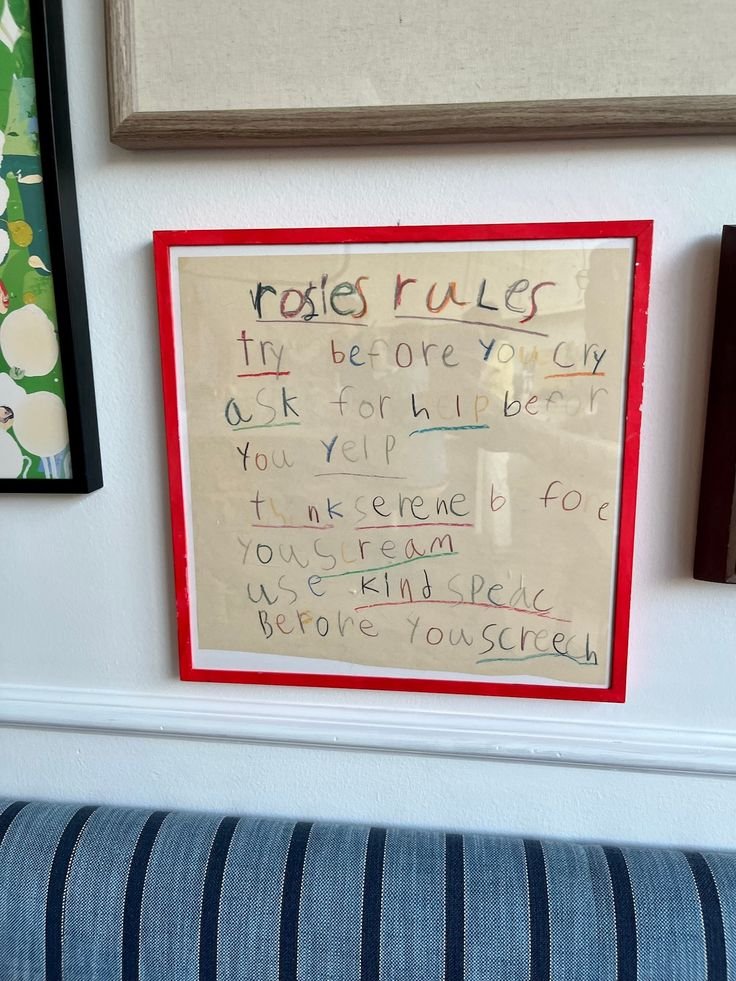 rosies rules
try before you cry
ask for help befor
you yelp
think serene b fore
you scream
use kind speac
Before you screech